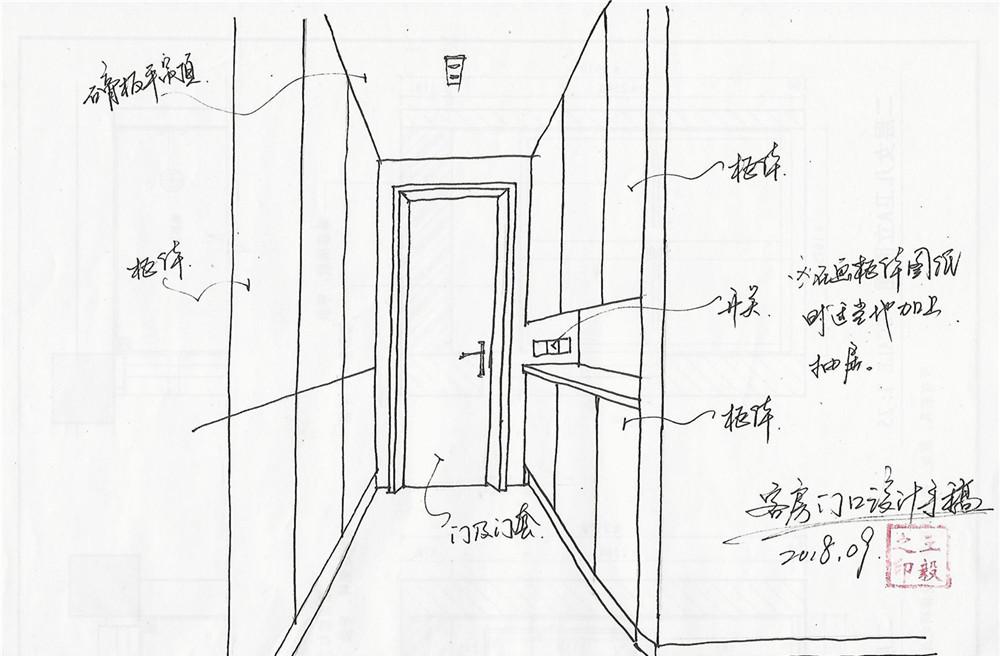 石膏板平吊顶.
柜体.
柜体.
开关.
※在画柜体图纸
时适当地加上
抽屉。
柜体.
门及门套.
客房门口设计手稿
2018.09.
王毅之印